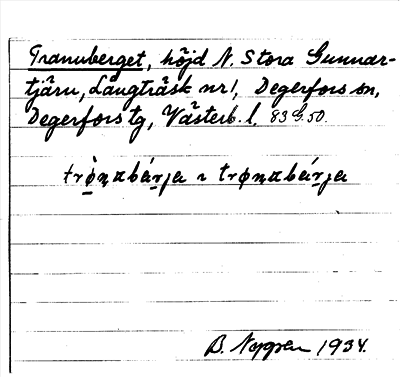 Tranuberget, höjd N. Stora Gunnar-
tjärn, Långträsk nr 1, Degerfors sn,
Degerfors tg, Västerb. l. 83 G. 50.
trǫ̀nabárja ɿ trǫnabárja
B. Nygren 1934.